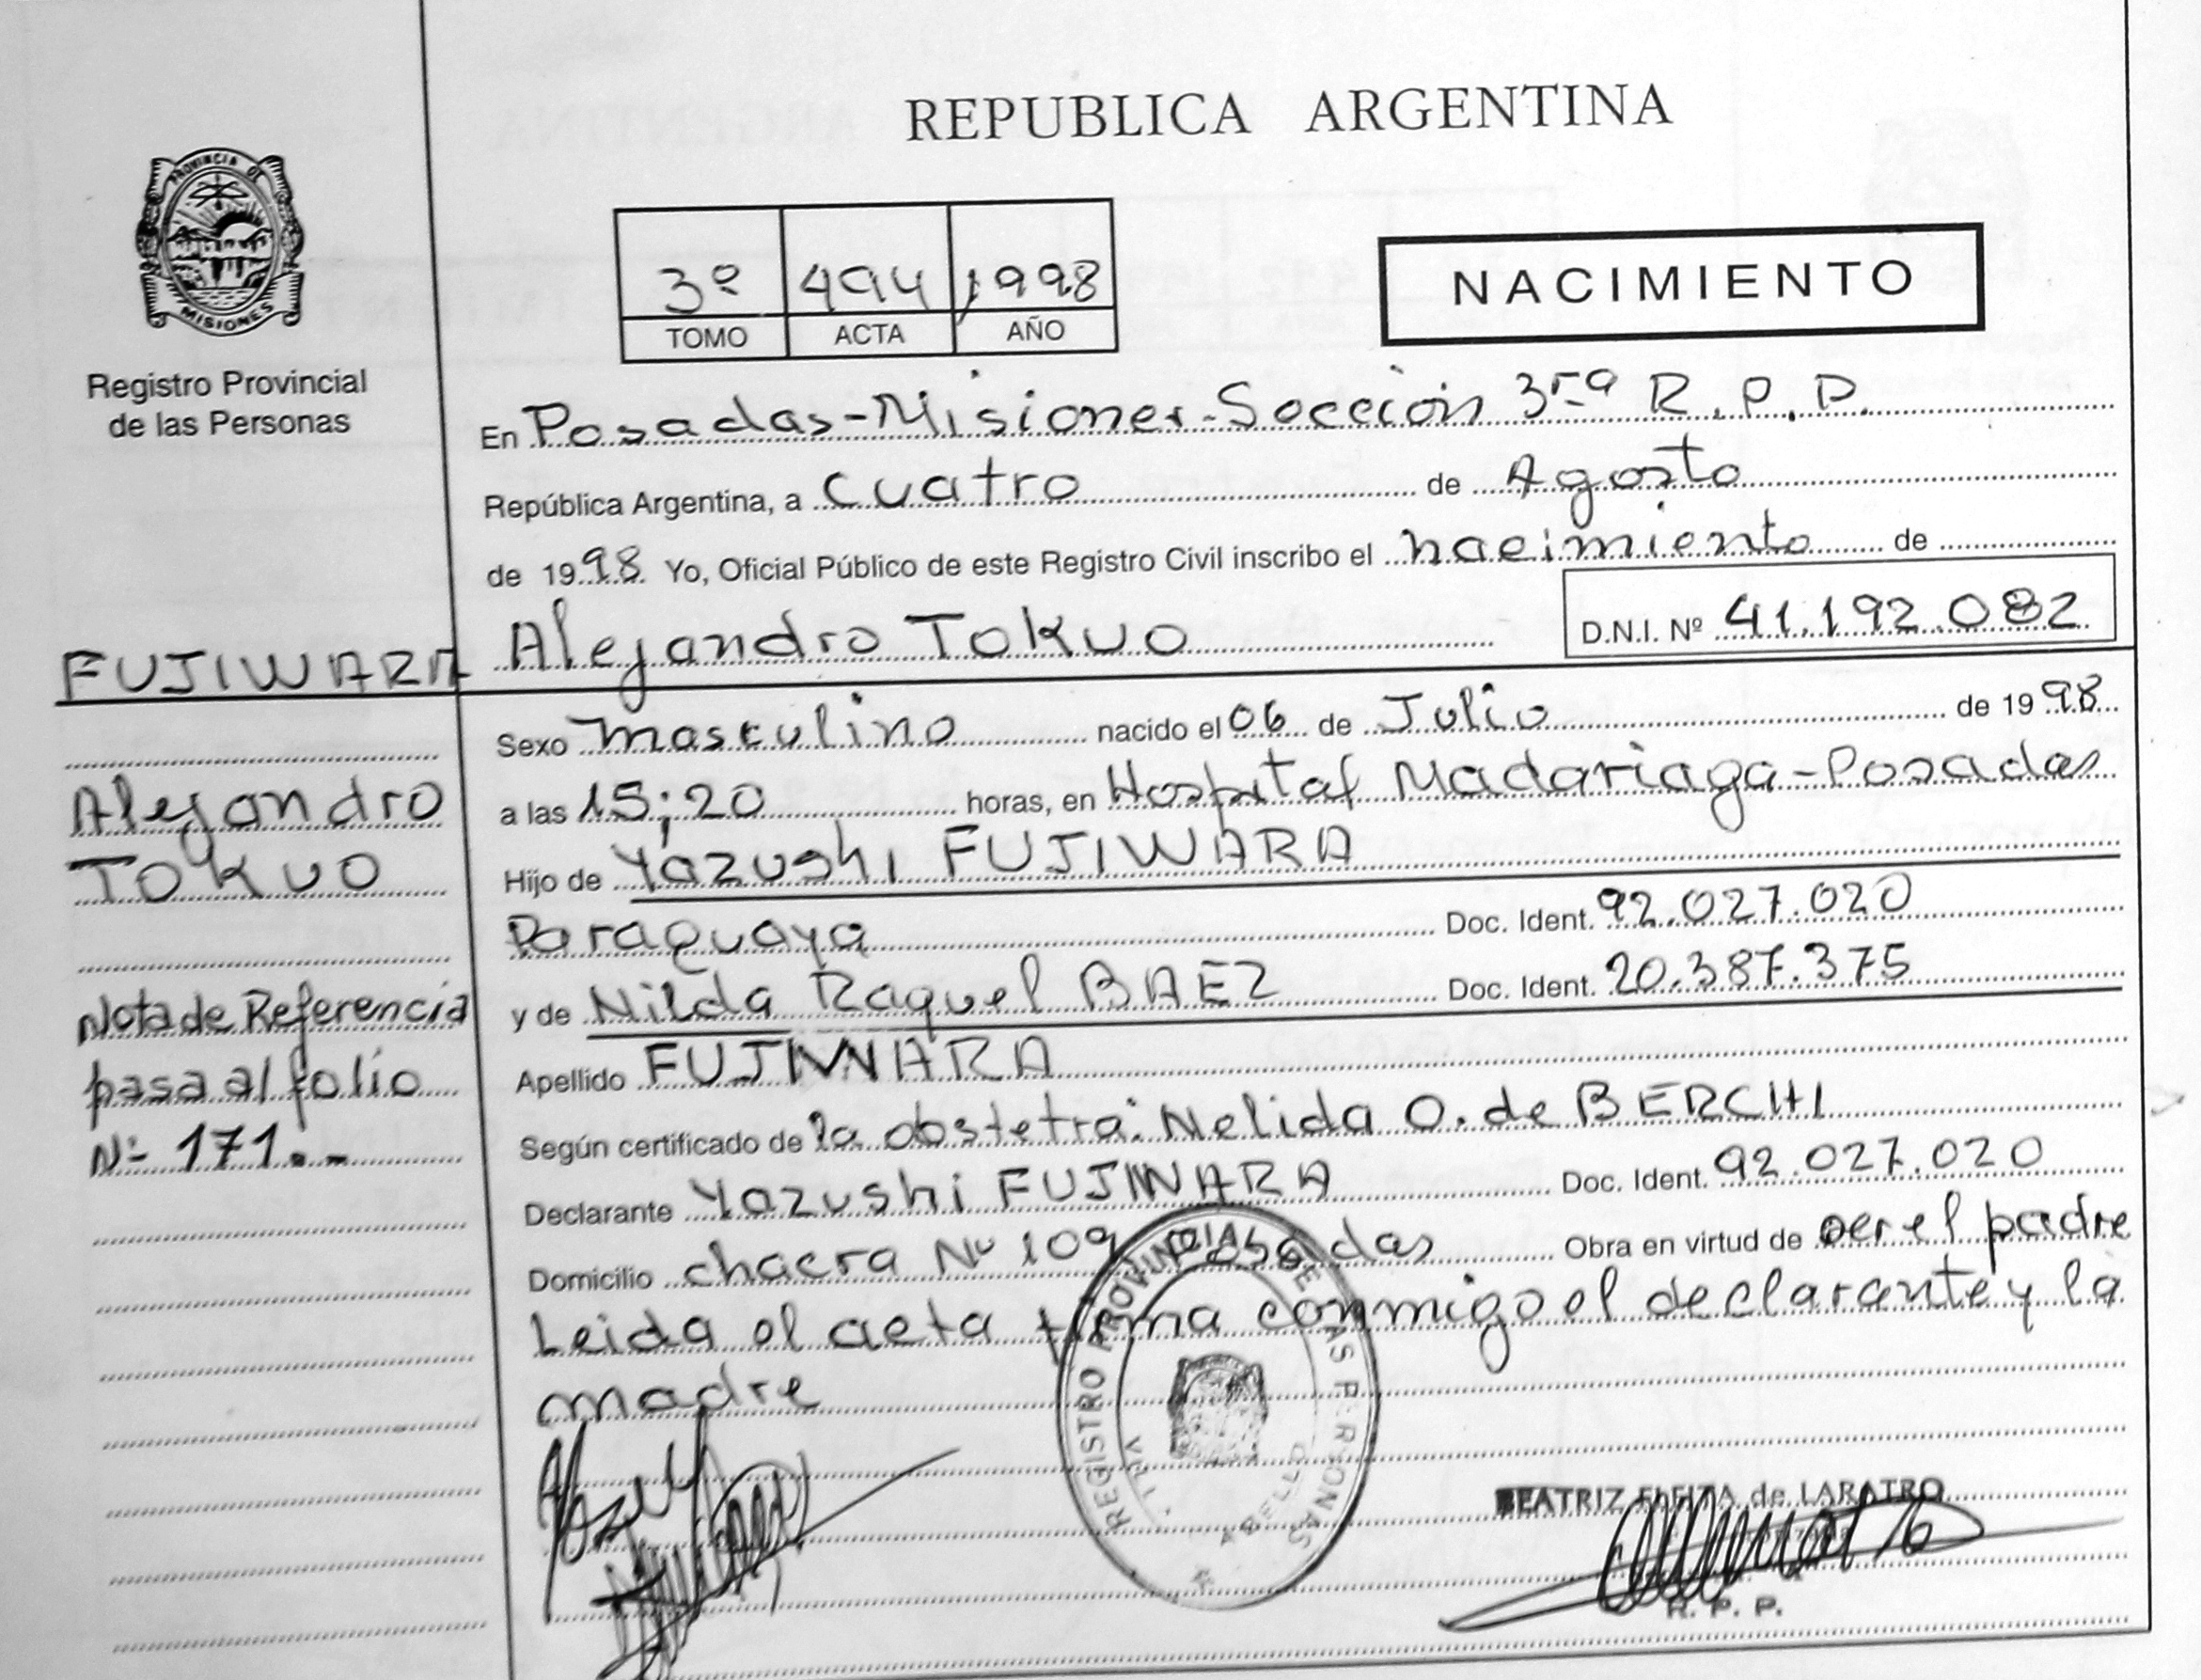 REPUBLICA ARGENTINA
PROVINCIA DE
MISIONES
Registro Provincial
de las Personas
3º 494 1998
TOMO ACTA AÑO
NACIMIENTO
En Posadas-Misiones-Sección 3ra R.P.P.
República Argentina, a cuatro de Agosto
de 1998 Yo, Oficial Público de este Registro Civil inscribo el nacimiento de
Alejandro Tokuo
D.N.I. Nº 41.192.082
FUJIWARA
Alejandro
Tokuo
Nota de Referencia
pasa al folio
Nº 171.-
Sexo masculino nacido el 06 de Julio de 1998
a las 15;20 horas, en Hospital Madariaga-Posadas
Hijo de Yazushi FUJIWARA
Paraguaya Doc. Ident. 92.027.020
y de Nilda Raquel BAEZ Doc. Ident. 20.387.375
Apellido FUJIWARA
Según certificado de la obstetra: Nelida O. de BERCHI
Declarante Yazushi FUJIWARA Doc. Ident. 92.027.020
Domicilio chacra Nº 109 Posadas Obra en virtud de ser el padre
Leida el acta firma conmigo el declarante y la
madre
REGISTRO PROVINCIAL DE LAS PERSONAS
BEATRIZ FLEITA de LARATRO
R. P. P.